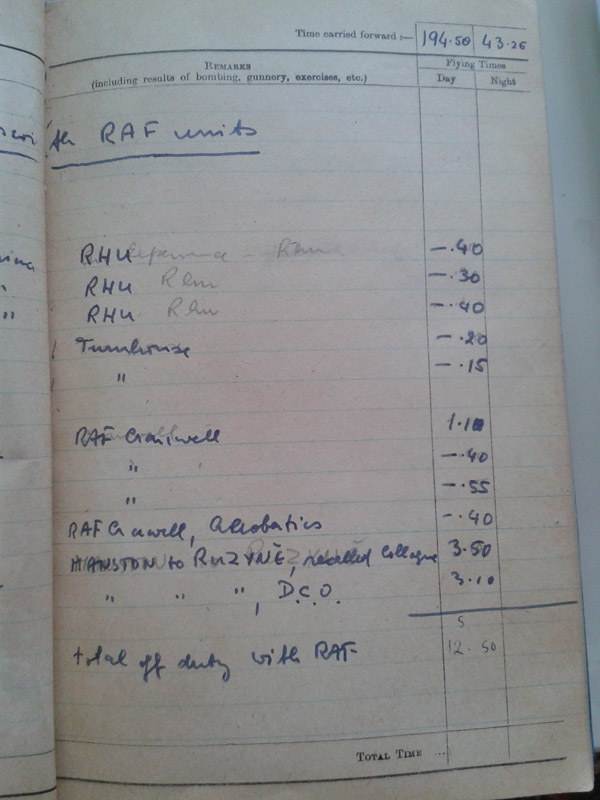 Time carried forward :— 194.50 43.25
REMARKS
(including results of bombing, gunnery, exercises, etc.)
Flying Times
Day Night
th RAF units
RHU —.40
RHU —.30
RHU —.40
Turnhouse —.20
" —.15
RAF Cranwell 1.10
" —.40
" —.55
RAF Cranwell, Aerobatics —.40
MANSTON to RUZYNĚ, recalled 3.50
" " ", D.C.O. 3.10
5
total off duty with RAF 12.50
TOTAL TIME ...